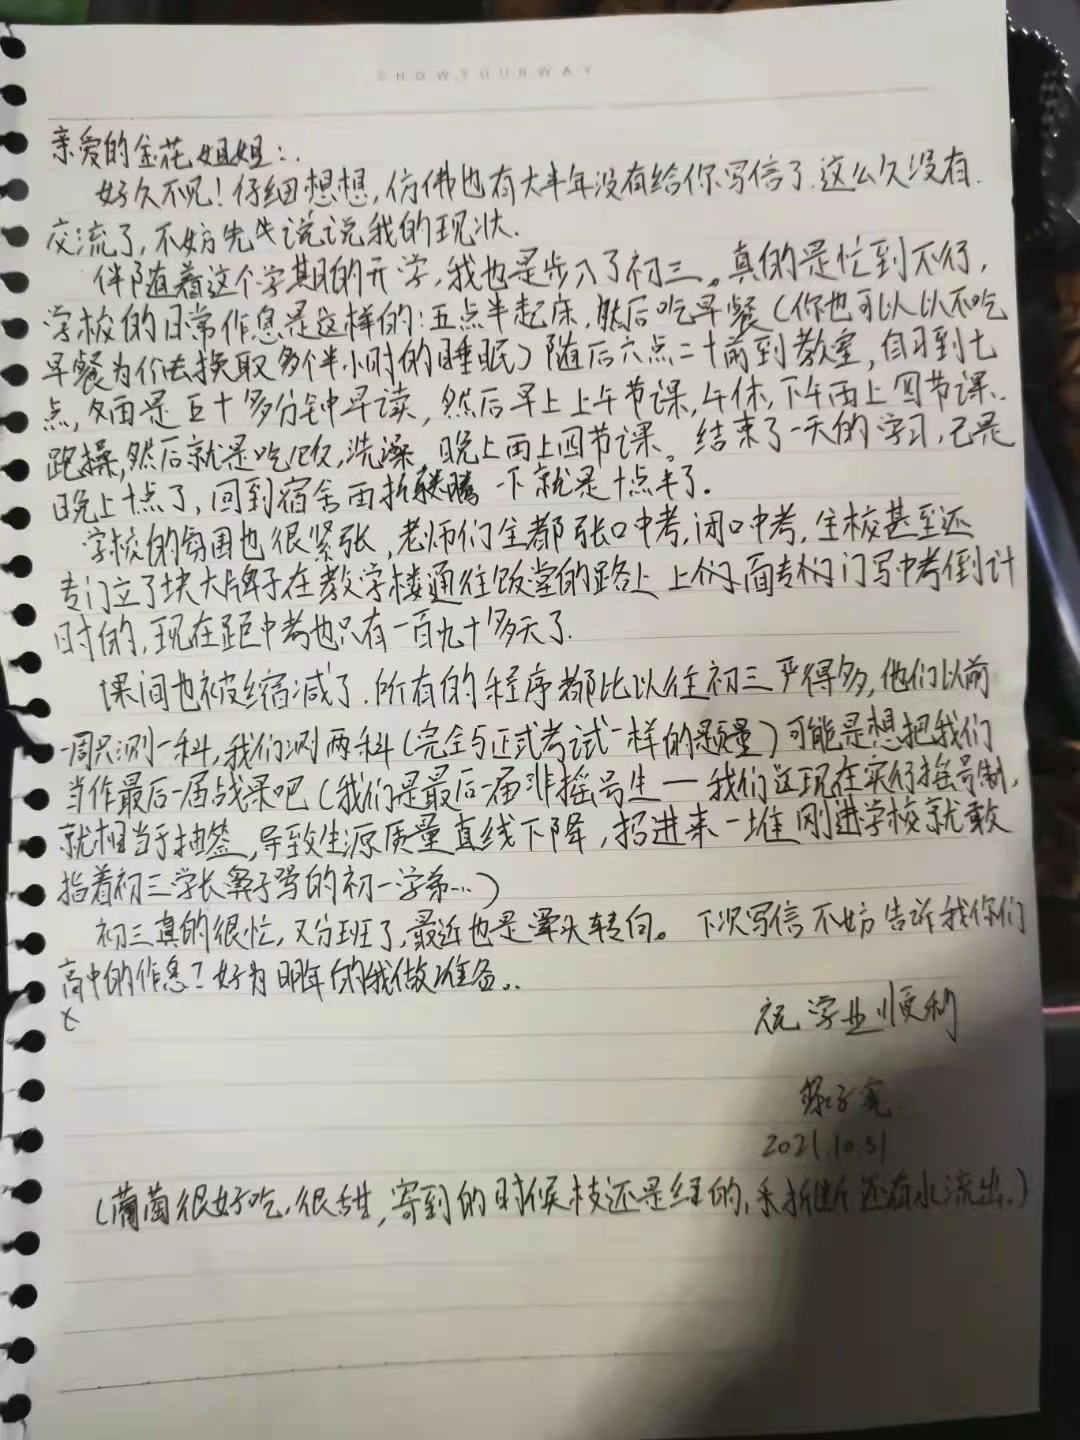 SHOWYOURWAY
亲爱的金花姐姐：
好久不见！仔细想想，仿佛也有大半年没有给你写信了.这么久没有
交流了，不妨先说说我的现状.
伴随着这个学期的开学，我也是步入了初三。真的是忙到不行，
学校的日常作息是这样的：五点半起床，然后吃早餐（你也可以以不吃
早餐为代价去换取多个半小时的睡眠）随后六点二十前到教室，自习到七
点，是五十多分钟早读，然后早上上午节课，午休，下午再上四节课.
跑操，然后就是吃饭，洗澡，晚上再上四节课。结束了一天的学习，已是
晚上十点了，回到宿舍再折腾一下就是十点半了.
学校的氛围也很紧张，老师们全都张口中考，闭口中考，学校甚至还
专门立了块大牌子在教学楼通往饭堂的路上 上面专门写中考倒计
时的，现在距中考也只有一百九十多天了.
课间也被缩减了.所有的程序都比以往初三严得多，他们以前
一周只测一科，我们测两科（完全与正式考试一样的质量）可能是想把我们
当作最后一届战果吧（我们是最后一届非摇号生—我们这现在实行摇号制，
就相当于抽签，导致生源质量直线下降，招进来一堆刚进学校就敢
指着初三学长鼻子骂的初一学弟…）
初三真的很忙，又分班了，最近也是晕头转向。下次写信不妨告诉我你们
高中的作息？好为明年的我做准备..
祝学业顺利
2021.10.31
（葡萄很好吃，很甜，寄到的时候枝还是绿的，折断还有水流出.）